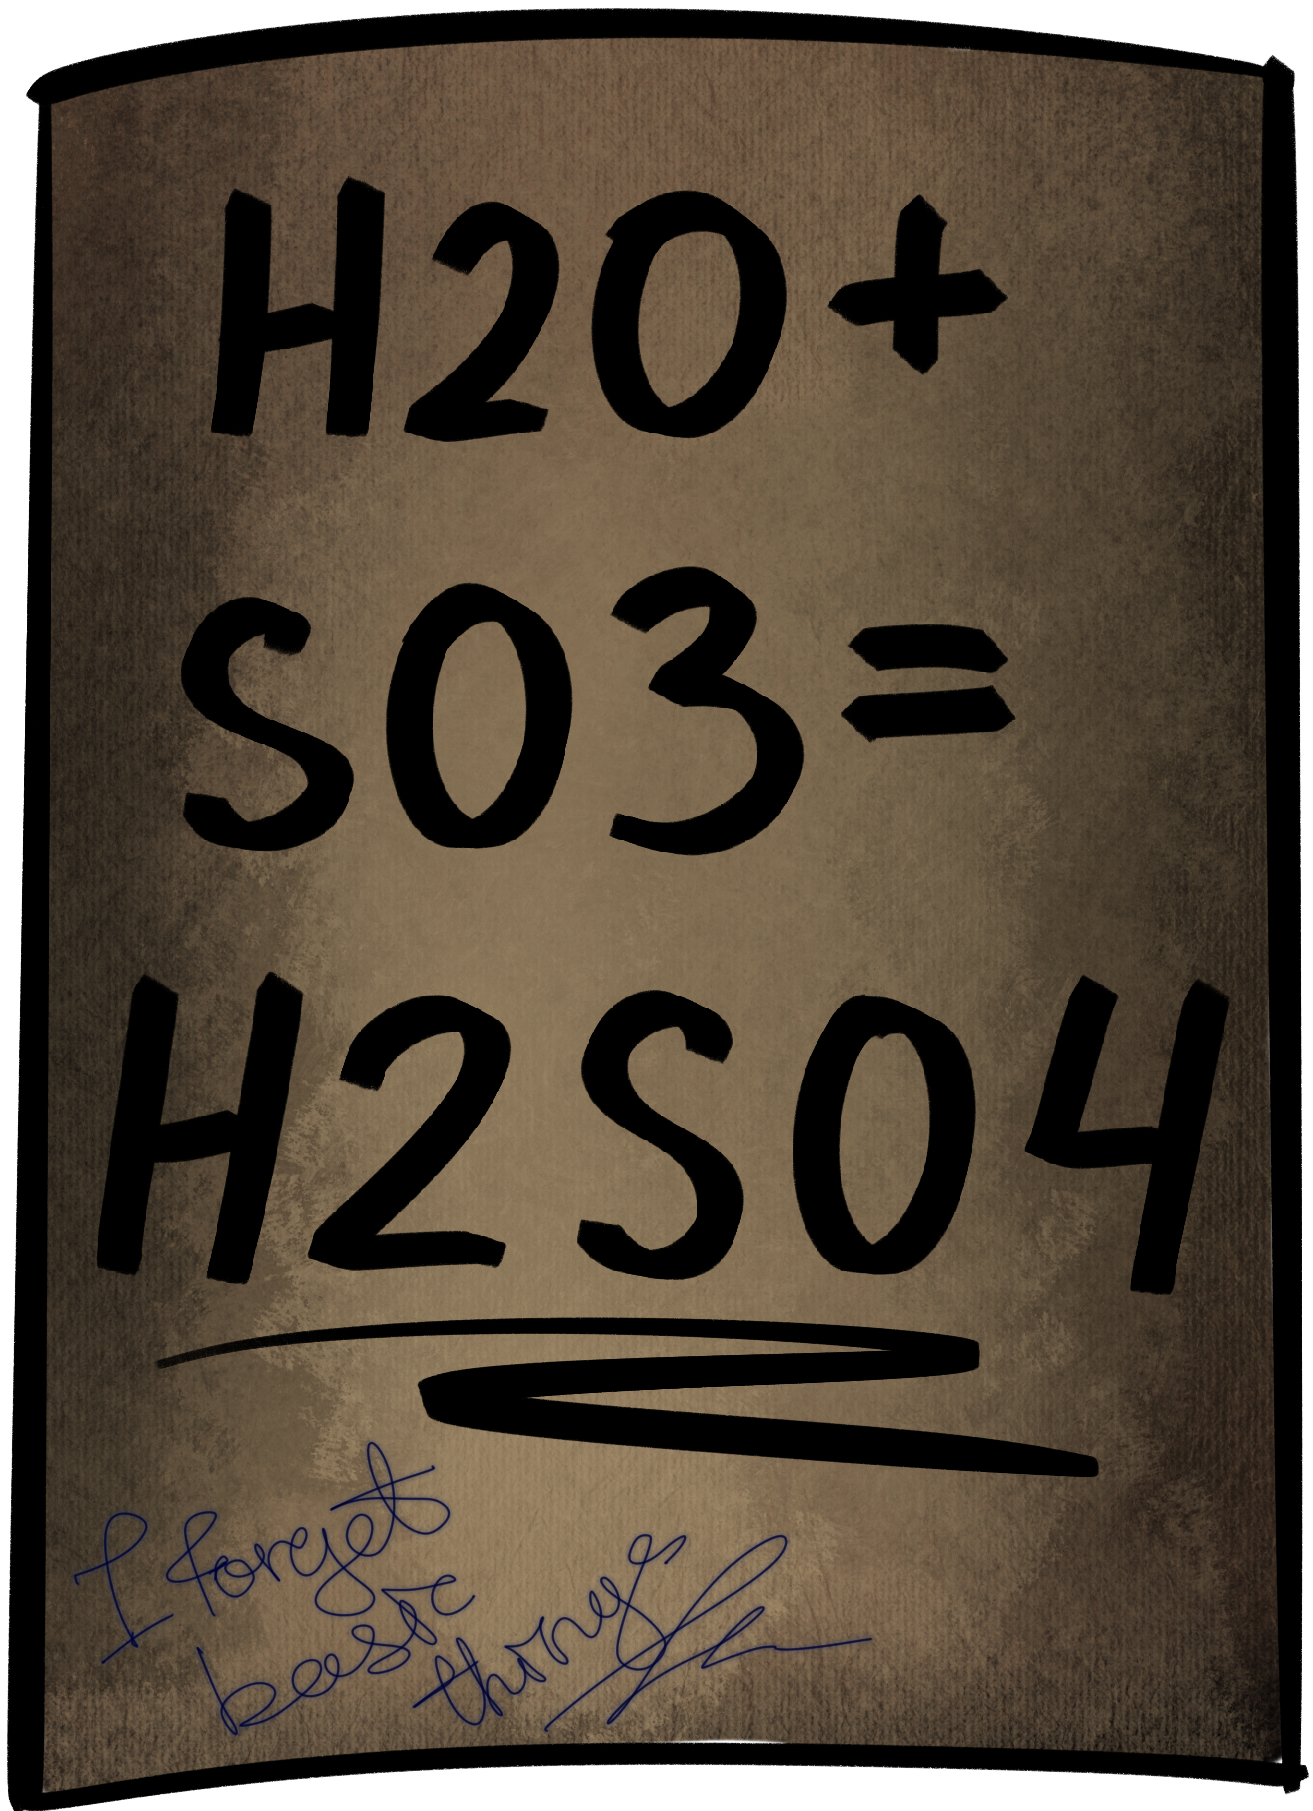 H2O+
SO3=
H2SO4
I forget
basic
things